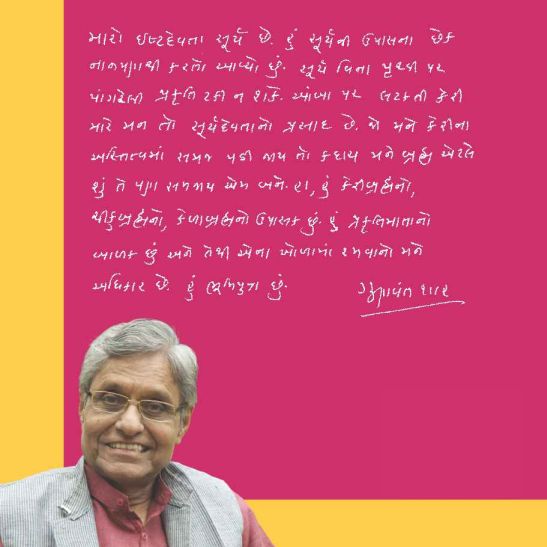 મારો ઇષ્ટદેવતા સૂર્ય છે. હું સૂર્યની ઉપાસના છેક
નાનપણથી કરતો આવ્યો છું. સૂર્ય વિના પૃથ્વી પર
પાંગરેલી પ્રકૃતિ ટકી ન શકે. આંબા પર લટકતી કેરી
મારે મન તો સૂર્યદેવતાનો પ્રસાદ છે. જો મને કેરીના
અસ્તિત્વમાં સમજ પડી જાય તો કદાચ મને બ્રહ્મ એટલે
શું તે પણ સમજાય એમ બને. હા, હું કેરીબ્રહ્મનો,
ચીકુબ્રહ્મનો, કેળાબ્રહ્મનો ઉપાસક છું. હું પ્રકૃતિમાતાનો
બાળક છું અને તેથી એના ખોળામાં રમવાનો મને
અધિકાર છે. હું ભૂમિપુત્ર છું.
ગુણવંત શાહ